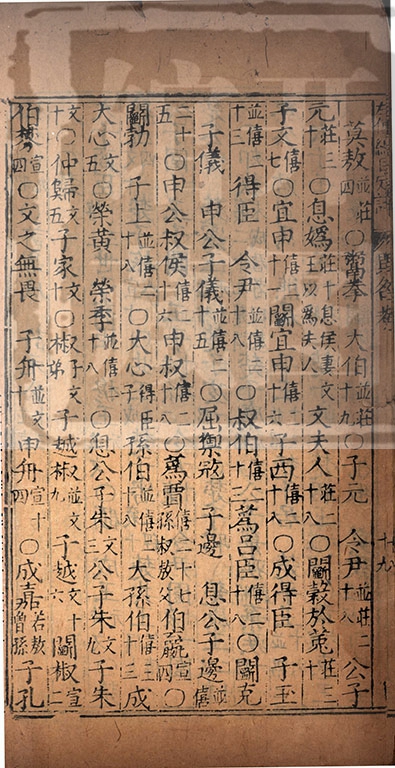 莫敖並莊四○鬻拳 大伯並莊十九○子元 令尹並莊二十八 公子
元莊三十○息媯息侯妻文王以為夫人 文夫人莊二十八○鬬穀於菟莊三十
子文僖○宜申僖二十一 鬬宜申僖二十六 子西僖二十八○成得臣 子玉
並僖二十三 得臣 令尹並僖二十八○叔伯僖二十三 蒍呂臣僖二十八○鬬克
子儀 申公子儀並僖二十五○屈禦寇 子邊 息公子邊並僖
二十五○申公叔侯僖二十六 申叔僖二十八○蒍賈孫叔敖父僖二十七 伯嬴宣四○
鬬勃 子上並僖二十八○大心得臣子 孫伯並僖二十八 大孫伯僖三十三 成
大心文五○榮黃 榮季並僖二十八○息公子朱文三 公子朱文九 子朱
文十○仲歸文五 子家文十○椒子文弟 子越椒並文九 子越文十六 鬬椒宣二
伯棼宣四○文之無畏 子舟並文十 申舟宣十四○成嘉若敖曾孫 子孔